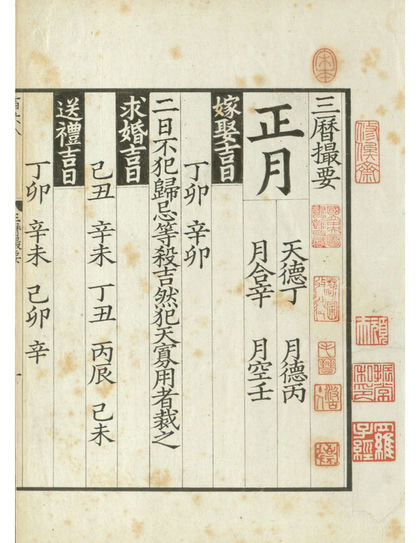 三曆撮要
正月
天德丁 月德丙
月合辛 月空壬
嫁娶吉日
丁卯 辛卯
二日不犯歸忌等殺吉然犯天寡用者裁之
求婚吉日
己丑 辛未 丁丑 丙辰 己未
送禮吉日
丁卯 辛未 己卯 辛
羅
子經